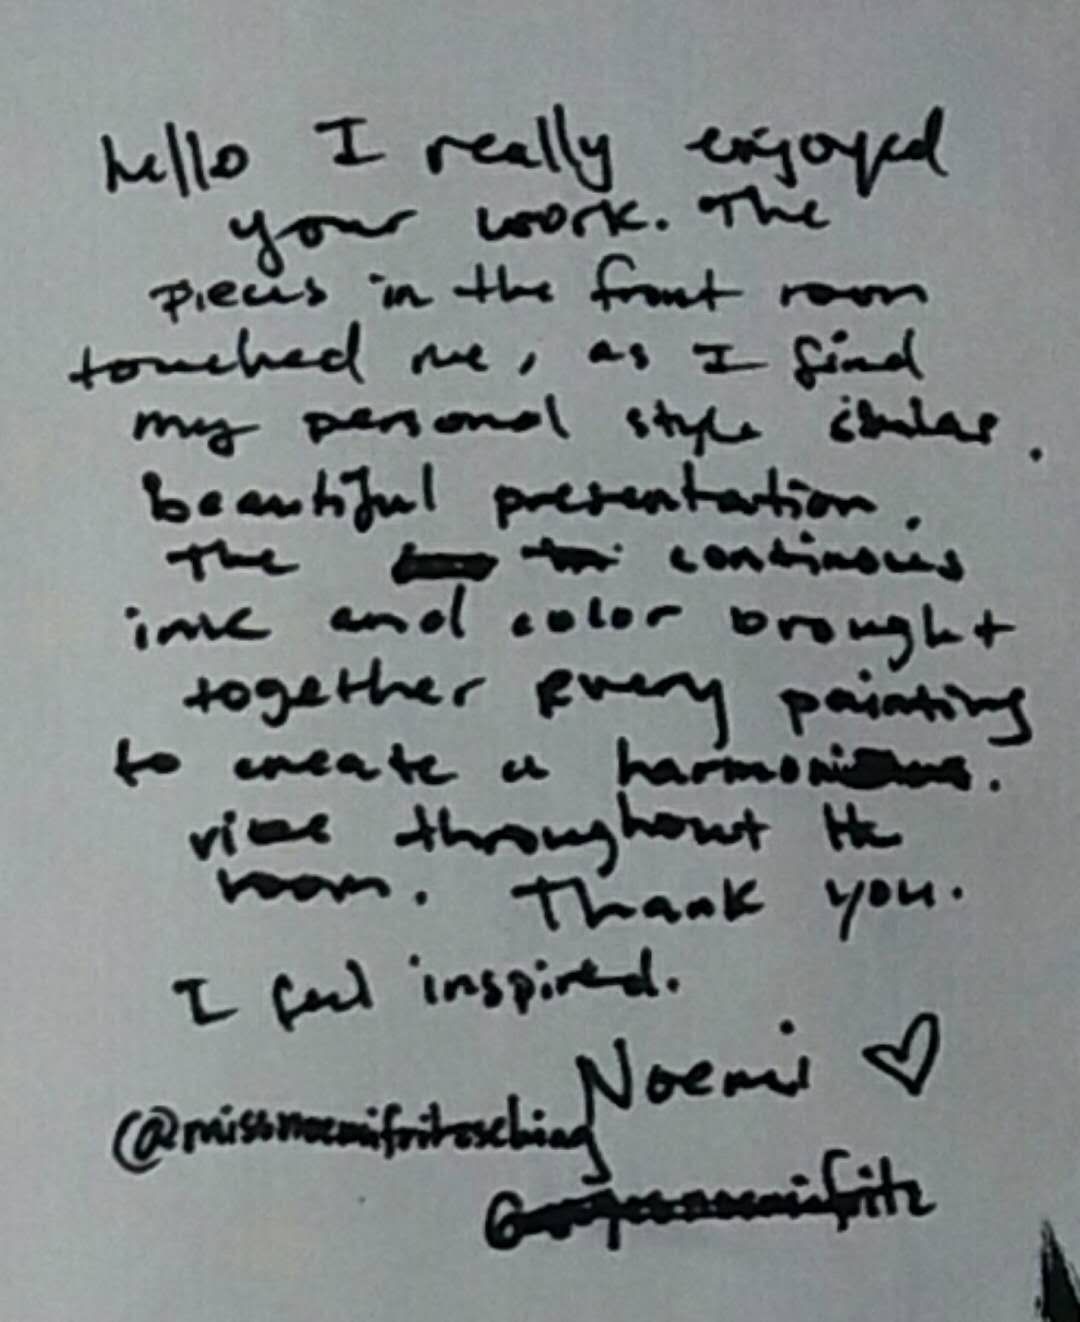 hello I really enjoyed
your work. The
pieces in the front room
touched me, as I find
my personal style
beautiful presentation.
The continous
ink and color brought
together every painting
to create a
vibe throughout the
room. Thank you.
I feel inspired.
Noemi ♡